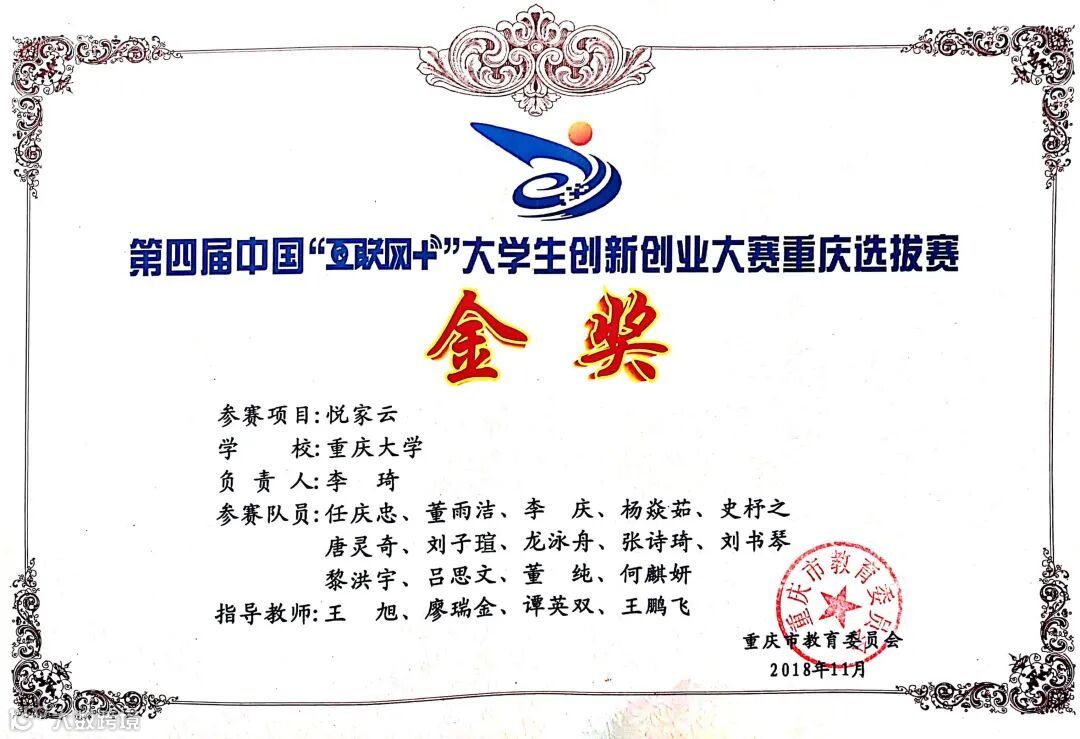 第四届中国“互联网+”大学生创新创业大赛重庆选拔赛
金 奖
参赛项目:悦家云
学 校:重庆大学
负 责 人:李 琦
参赛队员:任庆忠、董雨洁、李 庆、杨焱茹、史杍之
唐灵奇、刘子瑄、龙泳舟、张诗琦、刘书琴
黎洪宇、吕思文、董 纯、何麒妍
指导教师:王 旭、廖瑞金、谭英双、王鹏飞
重庆市教育委员会
重庆市教育委员会
2018年11月
大数跨境